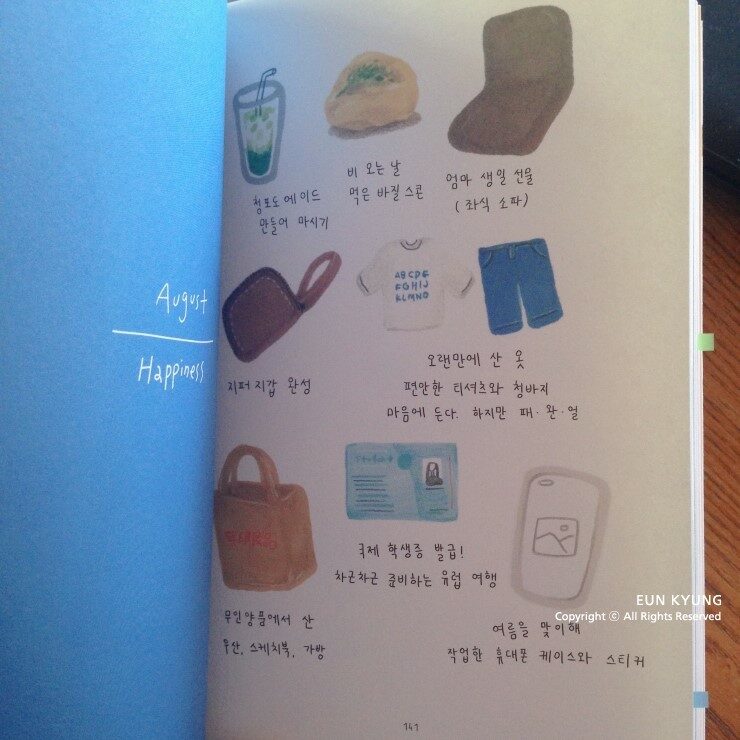 August
Happiness
청포도 에이드
만들어 마시기
비 오는 날
먹은 바질 스콘
엄마 생일 선물
(좌식 소파)
지퍼 지갑 완성
ABCDE
FGHIJ
KLMNO
오랜만에 산 옷
편안한 티셔츠와 청바지
마음에 든다. 하지만 패·완·얼
Student
국제 학생증 발급!
차근차근 준비하는 유럽 여행
무인양품에서 산
우산, 스케치북, 가방
여름을 맞이해
작업한 휴대폰 케이스와 스티커
141
EUN KYUNG
Copyright ⓒ All Rights Reserved